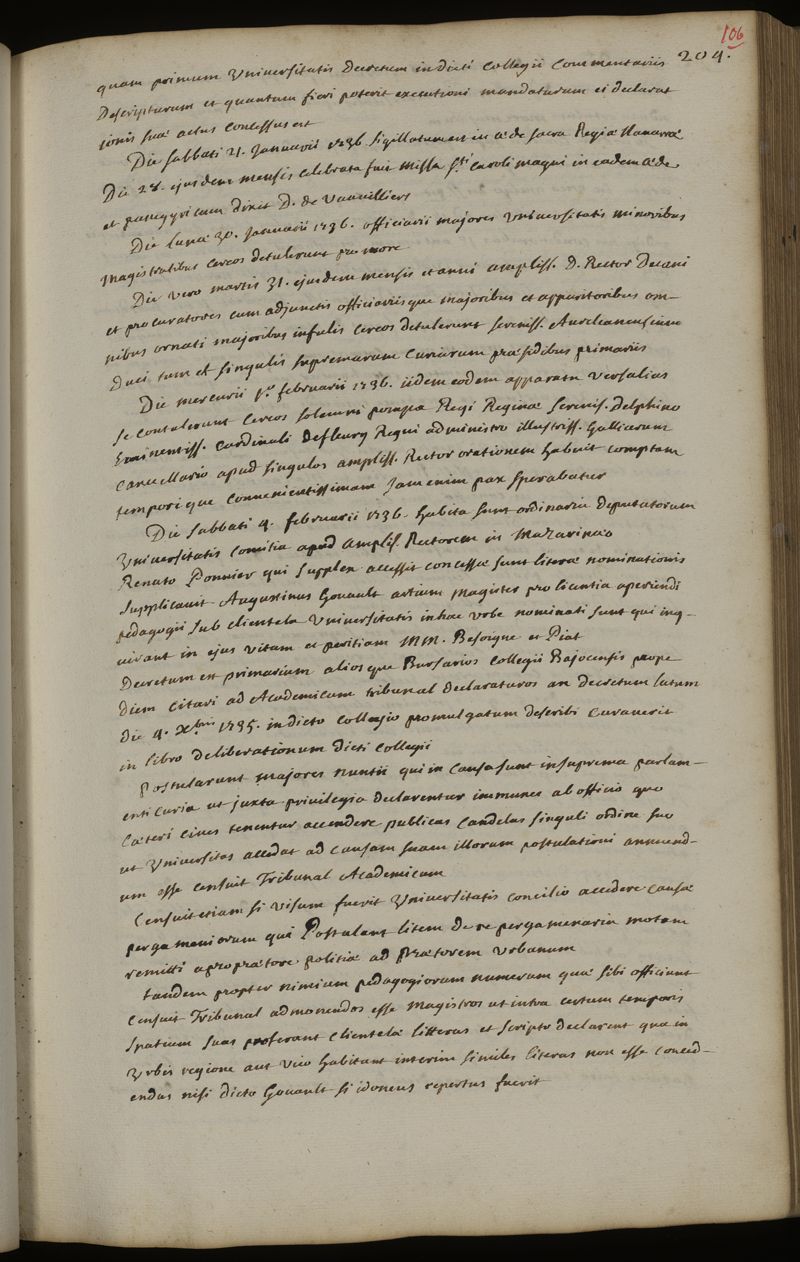 106
204.
quam primum Universitatis Decretum in dicti Collegii Commentariis
Descripturum et quantum fieri poterit executioni mandaturum ei declarat
ionis suæ actus concessus est
Die sabbati 21. Januarii 1736. sigillatum est in æde sacra Regiæ Navarræ
Die 28. ejusdem mensis celebrata fuit missa Sti Caroli magni in eadem æde
et panegyricum dixit D. de Vauvilliers
Die lunæ 30. Januarii 1736. officiarii majores Universitatis minoribus
magistratibus cereos detulerunt pro more
Die vero martis 31. ejusdem mensis et anni ampliss. D. Rector Decani
et procuratores cum adjunctis officiariisque majoribus et apparitoribus om-
nibus ornati majoribus infulis cereos detulerunt sereniss. Aurelianensium
Duci tum et singulis supremarum Curiarum præsidibus primariis
Die mercurii 1a. februarii 1736. iidem eodem apparatu Versalias
se contulerunt cereos solemni pompa Regi Reginæ Serenis. Delphino
Eminentiss. Cardinali Defleury Regni administro illustriss. Galliarum
Cancellario apud singulos ampliss. Rector orationem habuit comptam
temporique convenientissimam jam enim pax sperabatur
Die sabbati 4. februarii 1736. habita sunt ordinaria Deputatorum
Universitatis comitia apud Amplis. Rectorem in Mazarinæo
Renato Ponnier qui supplex accessit concessæ sunt literæ nominationis
Supplicavit Augustinus Govault artium magister pro licentia aperiendi
pedagogii sub clientela Universitatis in hac urbe nominati sunt qui inq-
uirant in ejus vitam et peritiam MM. Besoigne et Piat
Decretum est primarium aliosque Bursarios Collegii Bajocensis prope
diem citari ad Academicum tribunal declaraturos an decretum latum
die 4. Xbris 1735. in dicto collegio promulgatum describi curaverit
in libro deliberationum dicti Collegii
Postularunt majores nuntii qui in causa sunt in suprema parlam-
enti Curia ut juxta privilegia declarentur immunes ab officio quo
Cæteri cives tenentur accendere publicas candelas singuli ordine suo
ut Universitas accedat ad causam suam illorum postulationi annuend-
um esse censuit Tribunal Academicum
Censuit etiam si visum fuerit Universitatis concilio accedere causæ
pergameniorum qui Postulant litem de re pergamenaria motam
remitti a proprætore politiæ ad Prætorem Urbanum
tandem propter nimium pedagogiorum numerum quæ sibi officiunt
Censuit Tribunal admonendos esse Magistros ut intra certum temporis
spatium suas proferant Clientelæ litteras et scripto declarent qua in
Urbis regione aut vico habitant interim similes literas non esse conced-
endas nisi dicto Govault si idoneus repertus fuerit